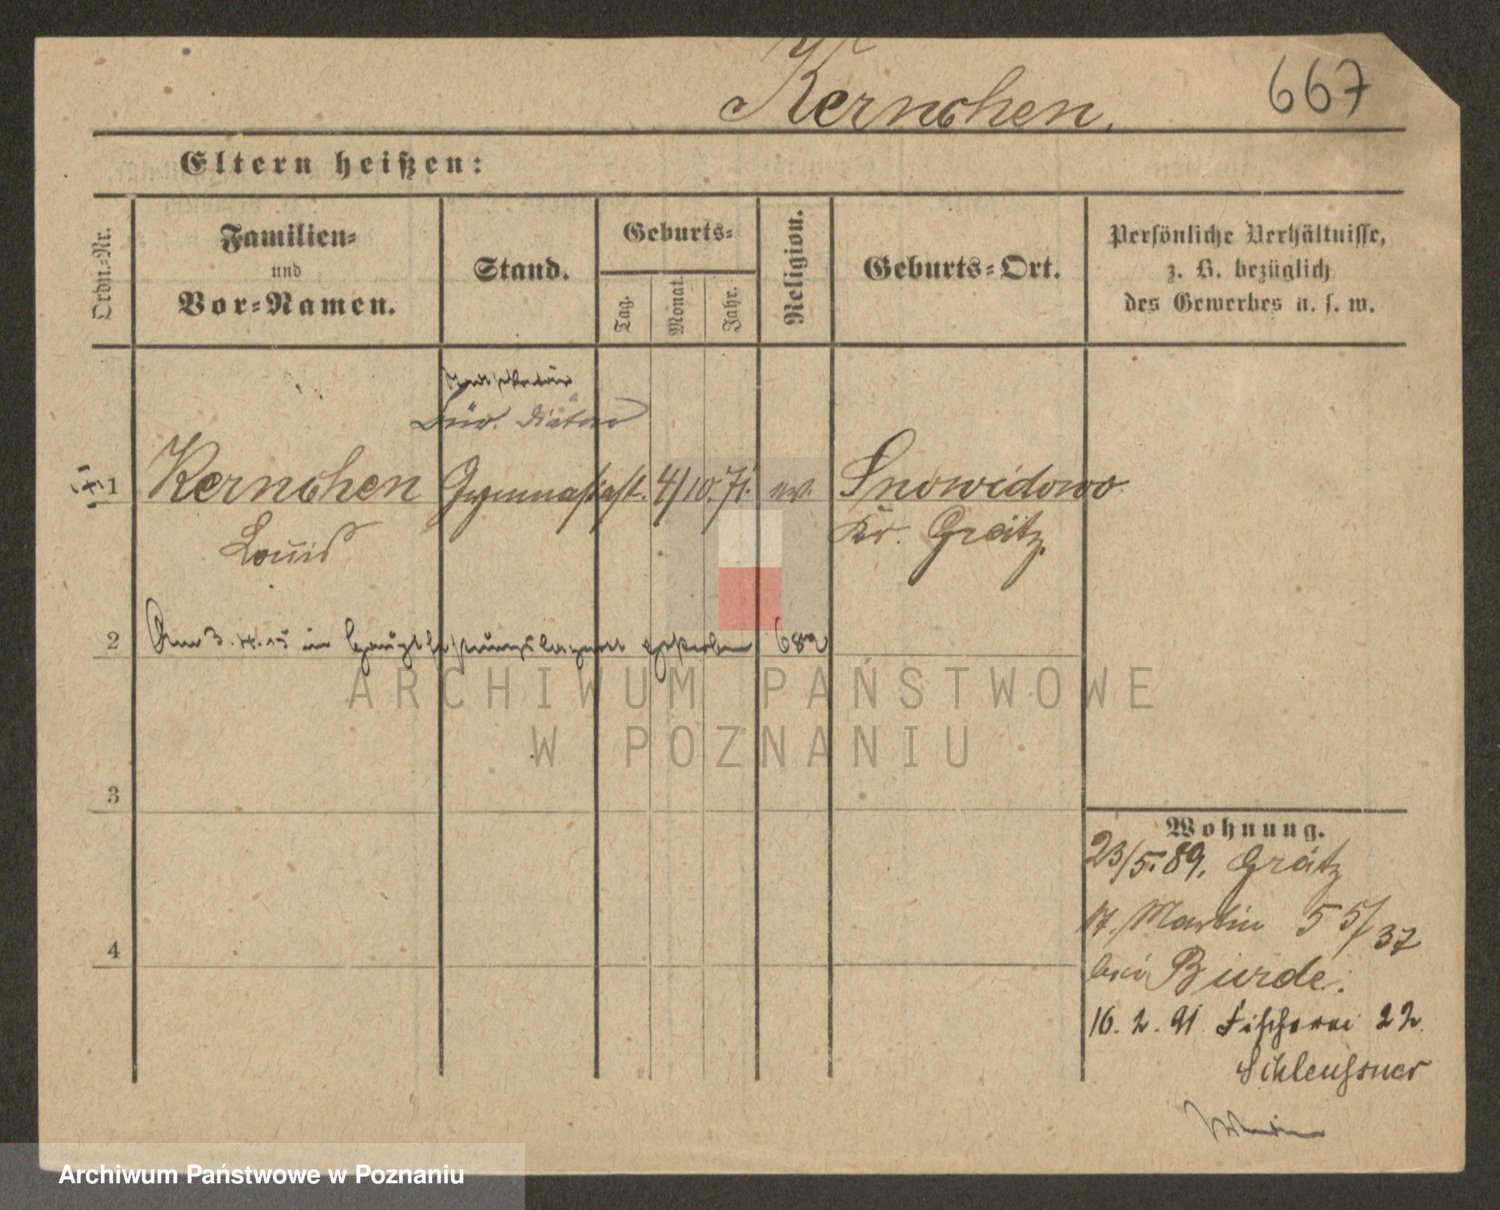 Kernchen.
667
Eltern heißen:
Ordn.-Nr.
Familien-
und
Vor-Namen.
Stand.
Geburts-
Tag.
Monat.
Jahr.
Religion.
Geburts-Ort.
Persönliche Verhältnisse,
z. B. bezüglich
des Gewerbes u. s. w.
Bür. Diätar
1 Kernchen Gymnasiast. 4/10.71. ev. Snowidowo
Louis Kr. Graitz.
2 Am 3.4.15 im gestorben 682
ARCHIWUM PAŃSTWOWE
W POZNANIU
3
4
Wohnung.
23/5.89. Grätz
Martin 55/37
bei Burde.
16.2.91 Fischerei 22
Schleussner
Archiwum Państwowe w Poznaniu